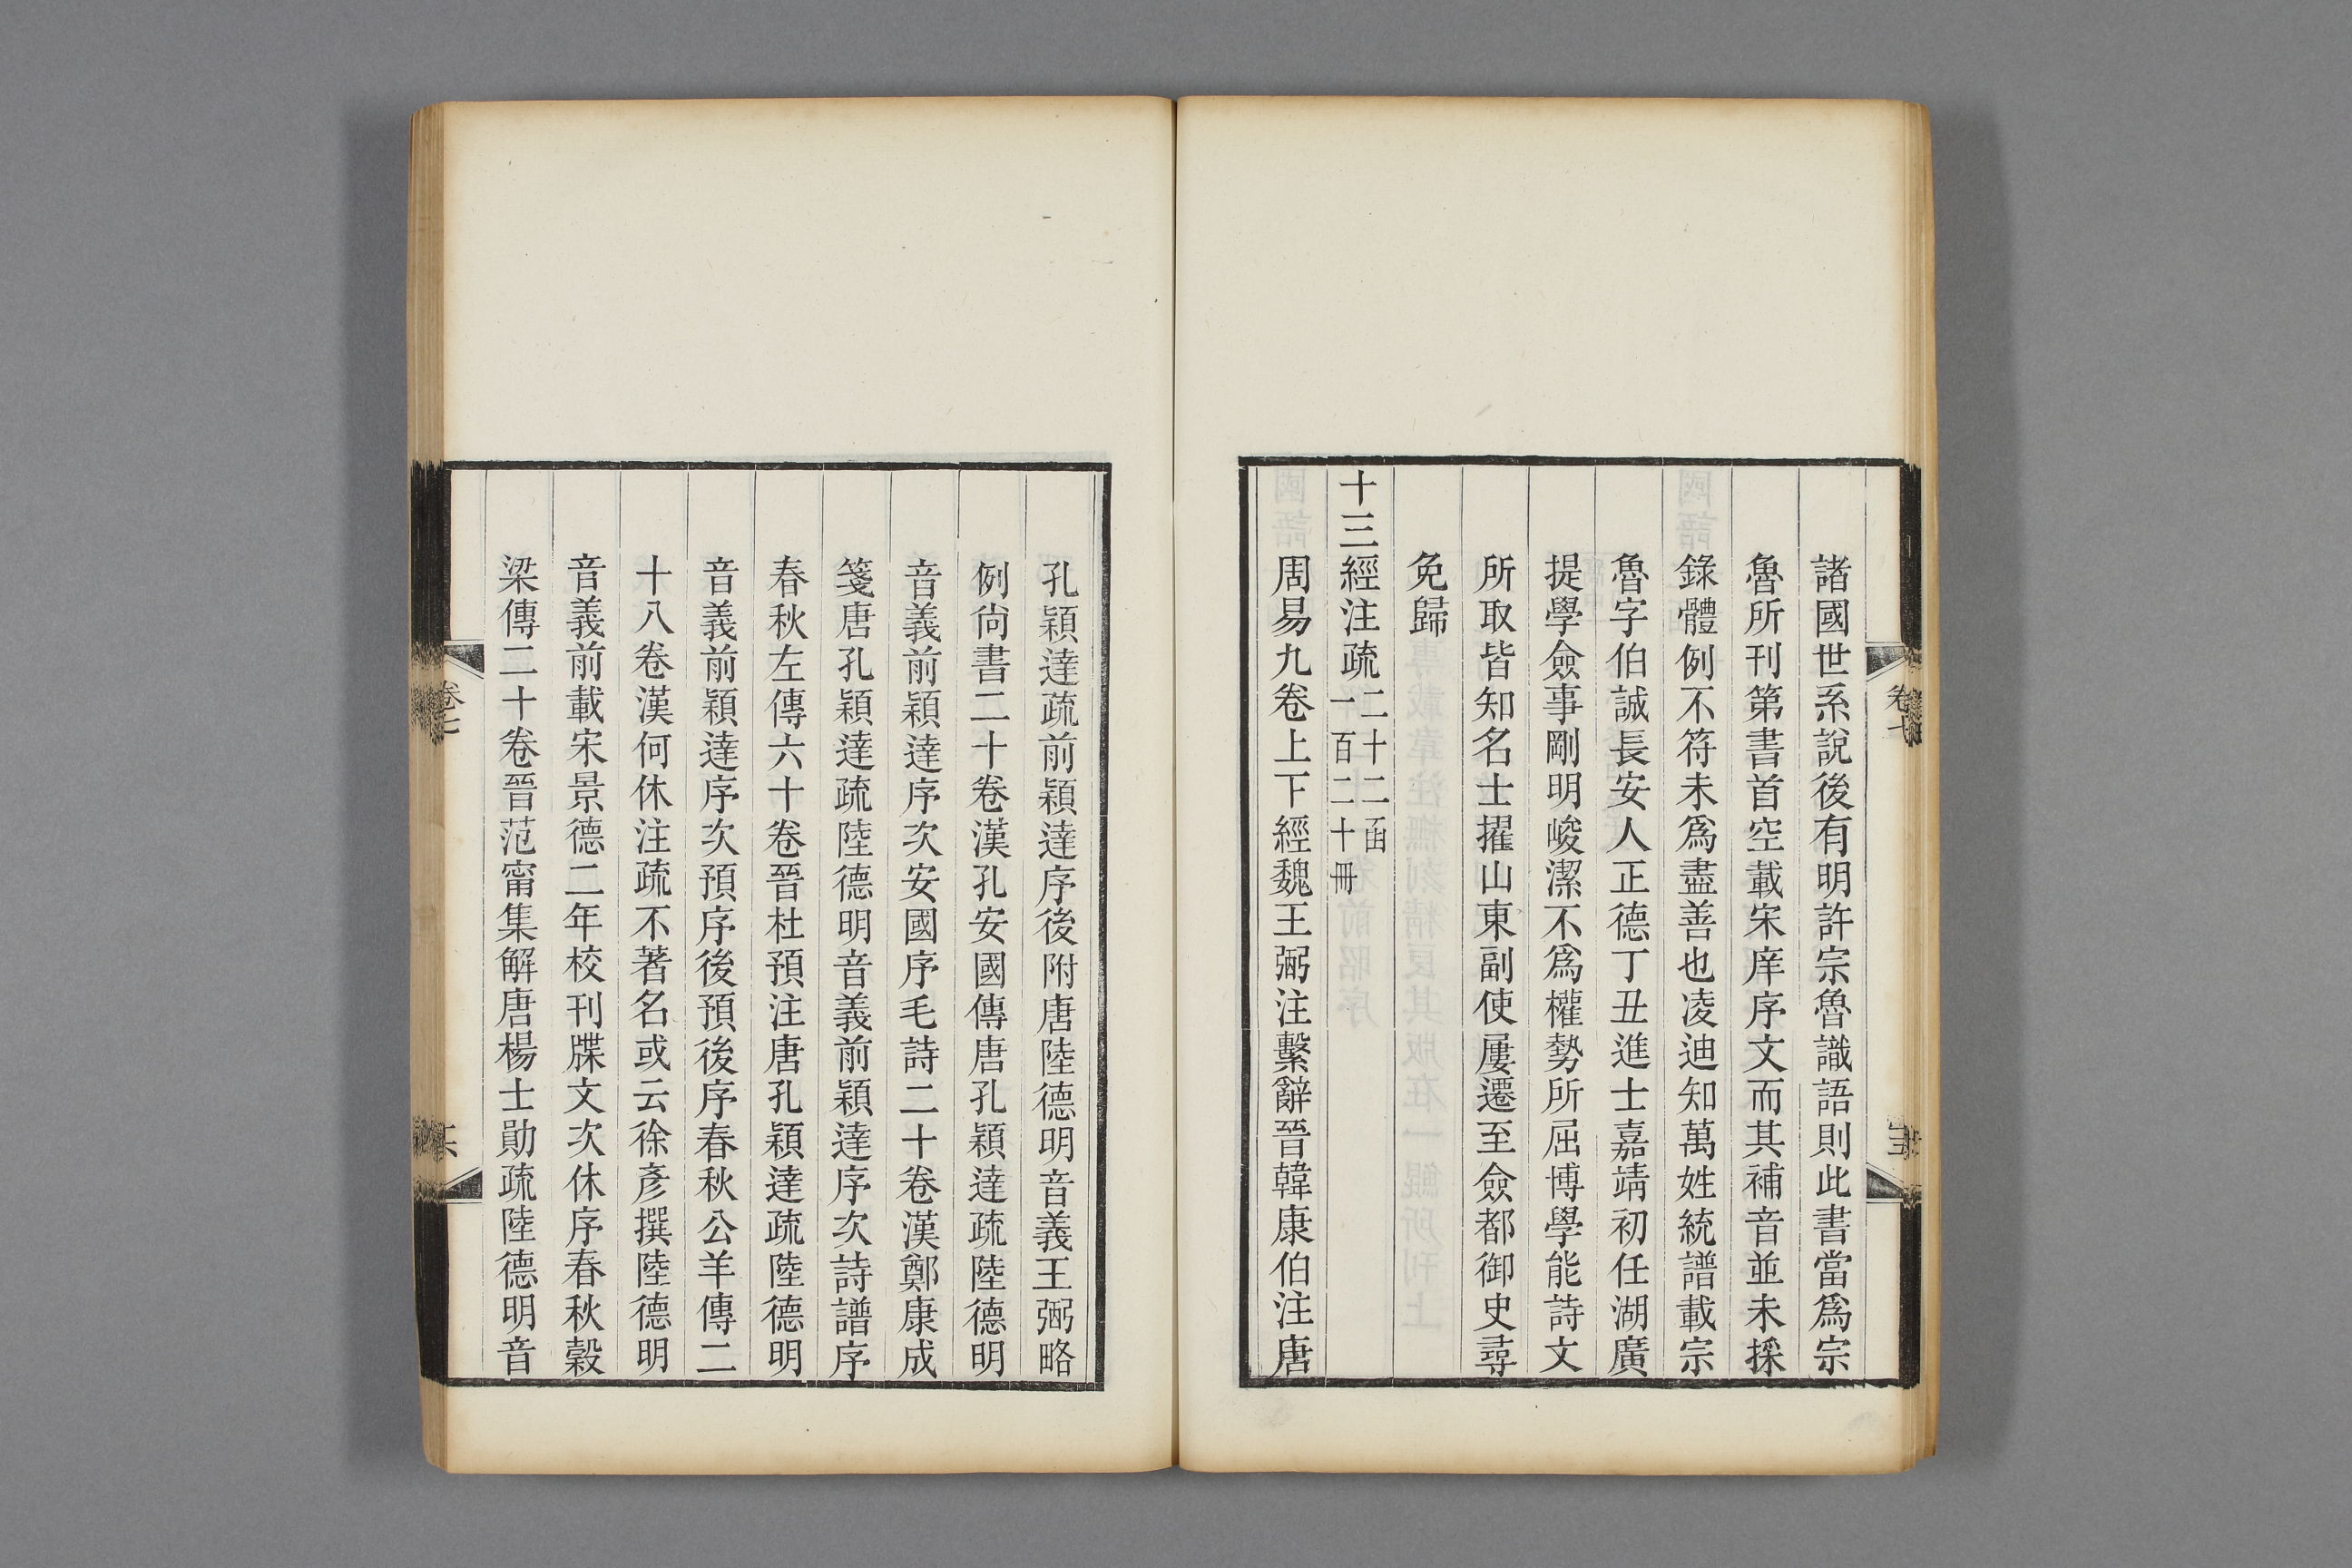 諸國世系說後有明許宗魯識語則此書當爲宗
魯所刊第書首空載宋庠序文而其補音並未採
錄體例不符未爲盡善也凌迪知萬姓統譜載宗
魯字伯誠長安人正德丁丑進士嘉靖初任湖廣
提學僉事剛明峻潔不爲權勢所屈博學能詩文
所取皆知名士擢山東副使屢遷至僉都御史尋
免歸
十三經注疏二十二函
一百二十冊
周易九卷上下經魏王弼注繫辭晉韓康伯注唐
孔穎達疏前穎達序後附唐陸德明音義王弼略
例尙書二十卷漢孔安國傳唐孔穎達疏陸德明
音義前穎達序次安國序毛詩二十卷漢鄭康成
箋唐孔穎達疏陸德明音義前穎達序次詩譜序
春秋左傳六十卷晉杜預注唐孔穎達疏陸德明
音義前穎達序次預序後預後序春秋公羊傳二
十八卷漢何休注疏不著名或云徐彥撰陸德明
音義前載宋景德二年校刊牒文次休序春秋穀
梁傳二十卷晉范甯集解唐楊士勛疏陸德明音
卷七
卷七